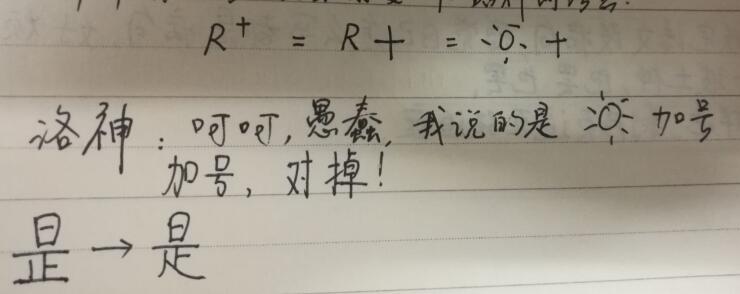 R⁺ = R + = ☼ +
洛神：呵呵，愚蠢，我说的是 ☼ 加号
加号，对掉！
昰 → 是